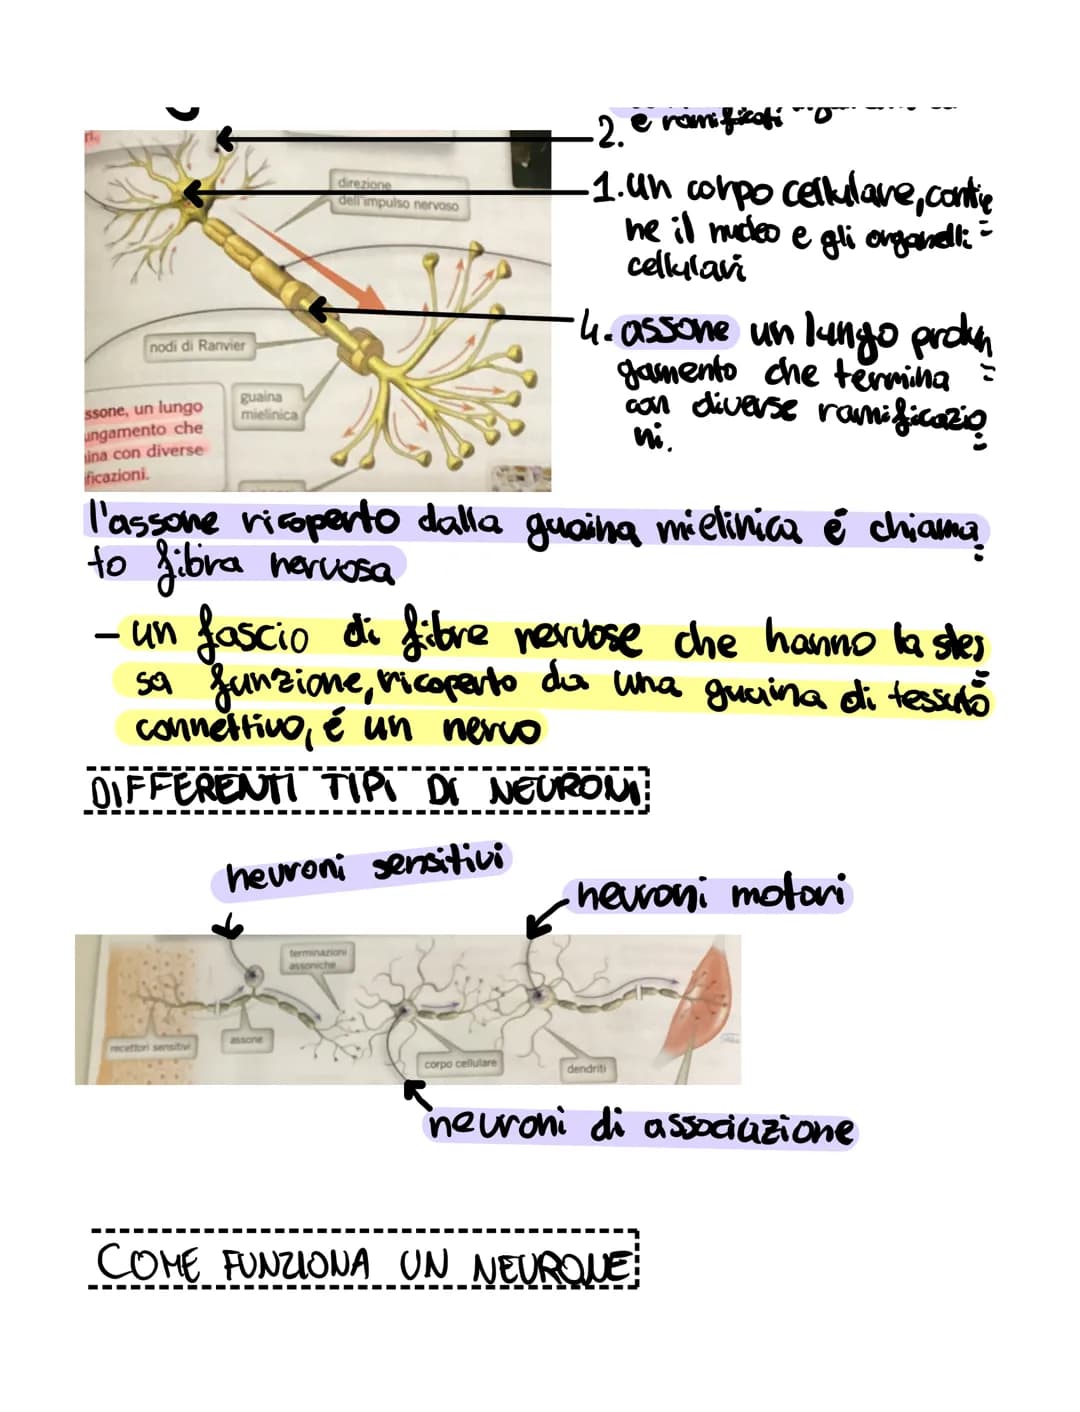 2. e ramificati
direzione
dell'impulso nervoso
1. un corpo cellulare, contie
ne il nucleo e gli organelli
cellulari
4. assone un lungo prolun
gamento che termina
con diverse ramificazio
ni.
nodi di Ranvier
guaina
mielinica
ssone, un lungo
ungamento che
ina con diverse
ficazioni.
l'assone ricoperto dalla guaina mielinica é chiama
to fibra nervosa
- un fascio di fibre nervose che hanno la stes
sa funzione, ricoperto da una guaina di tessuto
connettivo, é un nervo
DIFFERENTI TIPI DI NEURONI
neuroni sensitivi
neuroni motori
terminazioni
assoniche
recettori sensitivi
assone
corpo cellulare
dendriti
neuroni di associazione
COME FUNZIONA UN NEURONE